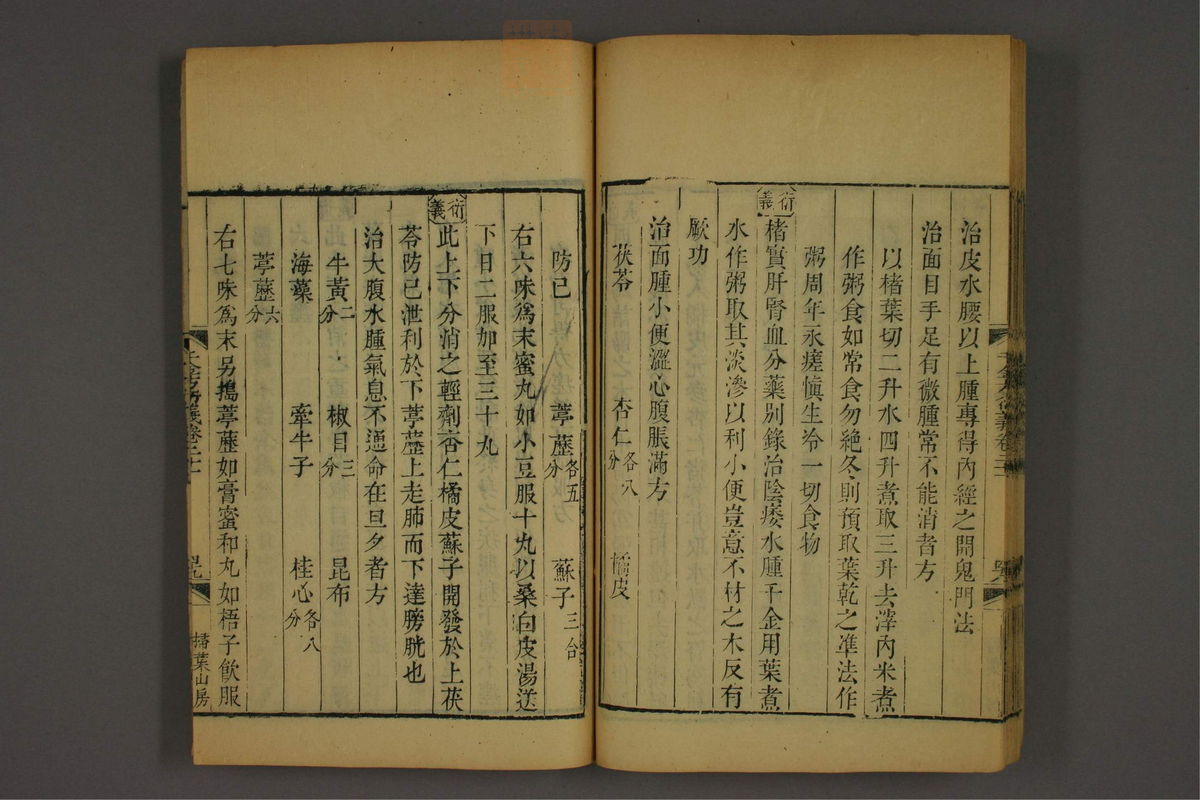 治皮水腰以上腫專得內經之開鬼門法
治面目手足有微腫常不能消者方
以楮葉切二升水四升煮取三升去滓內米煮
作粥食如常食勿絕冬則預取葉乾之准法作
粥周年永瘥愼生冷一切食物
衍義
楮實肝腎血分藥別錄治陰痿水腫千金用葉煮
水作粥取其淡滲以利小便豈意不材之木反有
厥功
治面腫小便澀心腹脹滿方
茯苓 杏仁各八分 橘皮
防已 葶藶各五分 蘇子三合
右六味爲末蜜丸如小豆服十丸以桑白皮湯送
下日二服加至三十丸
衍義
此上下分消之輕劑杏仁橘皮蘇子開發於上茯
苓防已泄利於下葶藶上走肺而下達膀胱也
治大腹水腫氣息不通命在旦夕者方
牛黃二分 椒目三分 昆布
海藻 牽牛子 桂心各八分
葶藶六分
右七味爲末另搗葶藶如膏蜜和丸如梧子飮服
掃葉山房